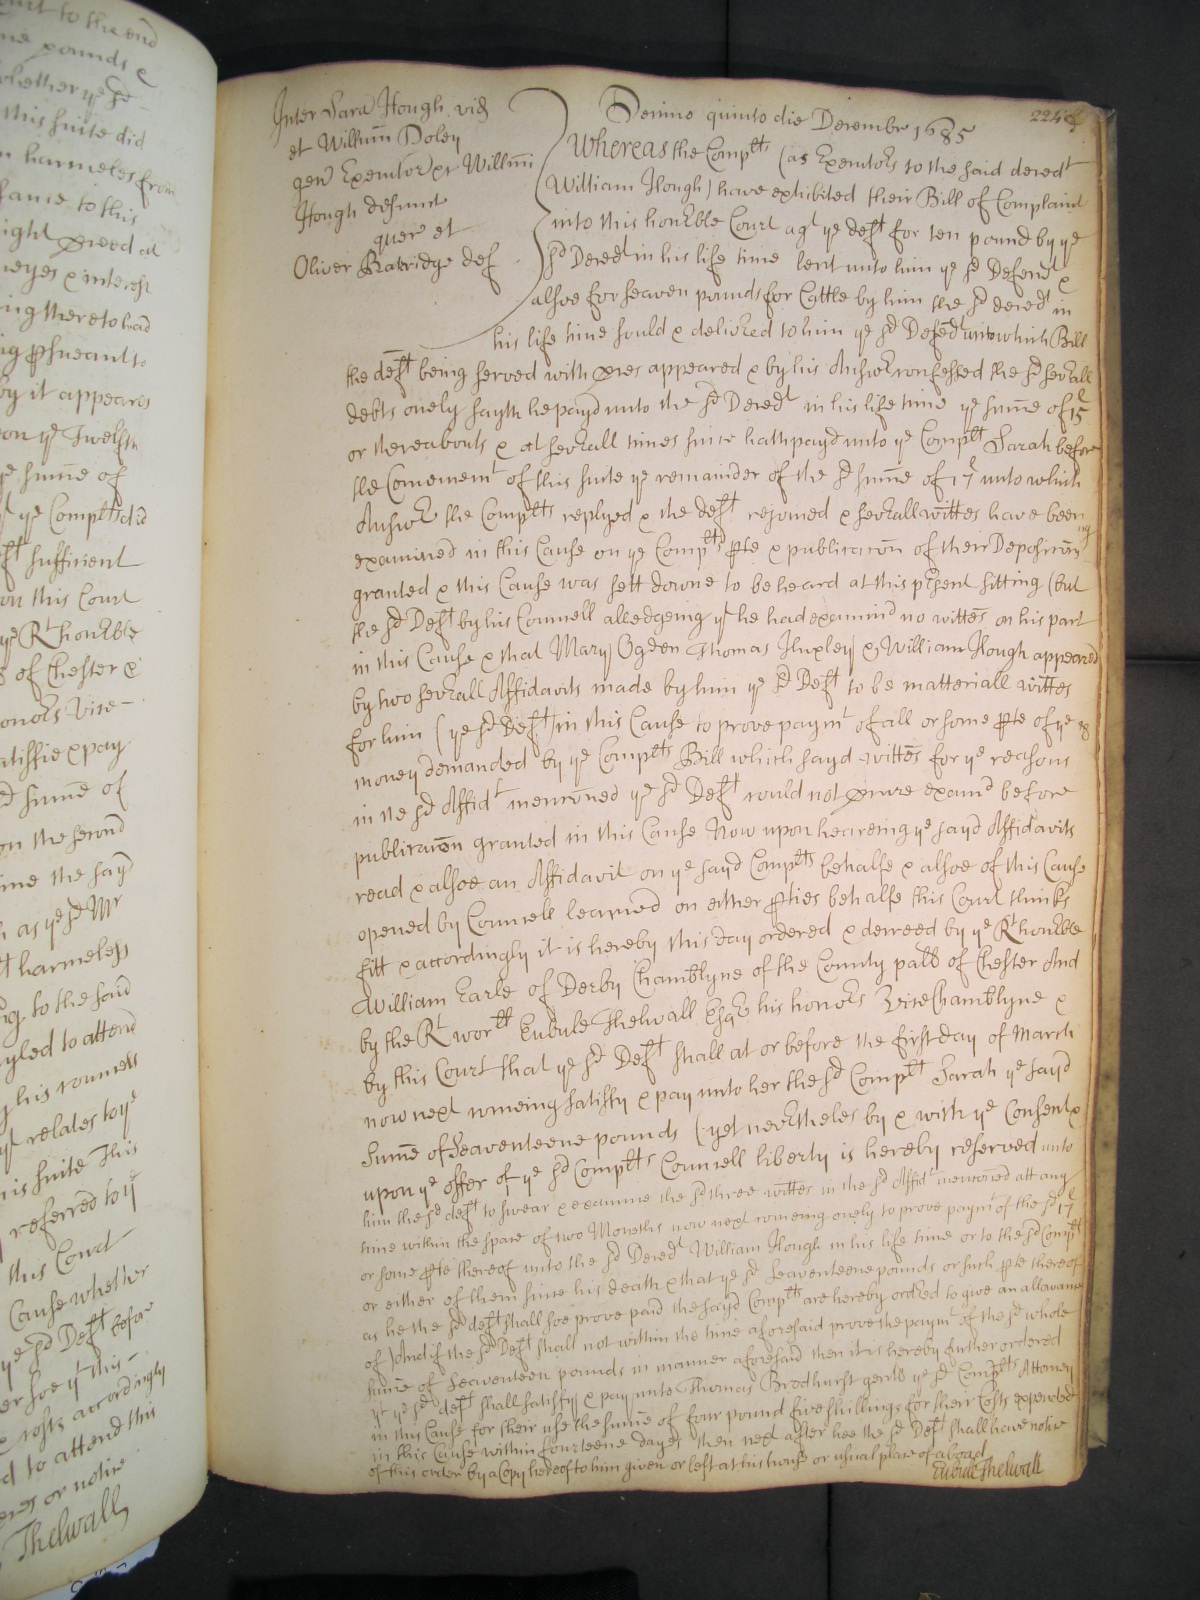 224
Inter Sara Hough vid
et Willim̄ Doley
gen̄ Executor̄ Willmi
Hough defunct
quer et
Oliver Baktridge def
Decimo quinto die Decembr 1685
Whereas the Complts (as Executors to the said decedt
William Hough) have exhibited their Bill of Complaint
into this honrble Court agt ye deft for ten pound by ye
sd Decedt in his life time lent unto him ye sd Defendt &
alsoe for seaven pounds for Cattle by him the sd decedt in
his life time sould & delivred to him ye sd Defendt unto which Bill
the deft being served with pces appeared & by his Answr confessed the sd sevrall
debts onely sayth he payd unto the sd Decedt in his life time ye sum̄e of 15l
or thereabouts & at sevrall times since hath payd unto ye Complt Sarah before
the Comencmt of this suite ye remainder of the sd sum̄e of 17l unto which
Answr the Complts replyed & the deft rejoined & sevrall wittes have been
examined in this Cause on ye Complts pte & publicac̄on of their Deposic̄ons
granted & this Cause was sett downe to be heard at this prsent sitting (but
the sd Deft by his Councell alledgeing yt he had examind no wittes on his part
in this Cause & that Mary Ogden Thomas Huxley & William Hough appeared
by two sevrall Affidavits made by him ye sd Deft to be matteriall wittes
for him (ye sd Deft) in this Cause to prove paymt of all or some pte of ye
money demanded by ye Complts Bill which sayd wittes for ye reasons
in the sd Affidt menc̄oned ye sd Deft could not pcure examd before
publicac̄on granted in this Cause Now upon heareing ye sayd Affidavits
read & alsoe an Affidavit on ye sayd Complts behalfe & alsoe of this Cause
opened by Councell learned on either pties behalfe this Court thinks
fitt & accordingly it is hereby this day ordered & decreed by ye Rt honrble
William Earle of Derby Chamblyne of the County palb of Chester And
by the Rt worll Eubule Thelwall Esqr his honors ViceChamblyne &
by this Court that ye sd Deft shall at or before the first day of March
now next comeing satisfy & pay unto her the sd Complt Sarah ye sayd
Sum̄e of Seaventeene pounds (yet nevrtheles by & with ye Consent &
upon ye offer of ye sd Complts Councell liberty is hereby reserved unto
him the sd deft to swear & examine the sd three wittes in the sd Affidt menc̄oned att any
time within the space of two Moneths now next comeing onely to prove paymt of the sd 17l
or some pte thereof unto the sd Decedt William Hough in his life time or to the sd Complts
or either of them since his death & that ye sd Seaventeene pounds or such pte thereof
as he the sd deft shall soe prove paid the sayd Complts are hereby ordred to give an allowance
of) And if the sd Deft shall not within the time aforesaid prove the paymt of the sd whole
sum̄e of Seaventeen pounds in manner aforesaid then it is hereby further ordered
yt ye sd deft shall satisfy & pay unto Thomas Brodhurst gentl ye sd Complts Attorney
in this Cause for their use the sum̄e of four pound five shillings for their Costs expended
in this Cause within fourteene dayes then next after hee the sd Deft shall have notice
of this order by a Copy hereof to him given or left at his house or usual place of aboad
Eubule Thelwall
ourt to the end
pounds &
whether ye sd
this suite did
harmeles from
same to this
ight
& interest
thereto had
psueant to
by it appeares
ye Twelfth
ye sum̄e of
ye Complts did
sufficient
this Court
ye Rt honrble
of Chester &
honors Vice
satisfie & pay
sd sum̄e of
on the second
time the sayd
as ye sd Mr
harmeless
to the said
to attend
his councell
relates to ye
suite This
referred to ye
this Court
Cause whether
ye sd Deft before
soe yt this
costs accordingly
to attend this
or notice
Thelwall